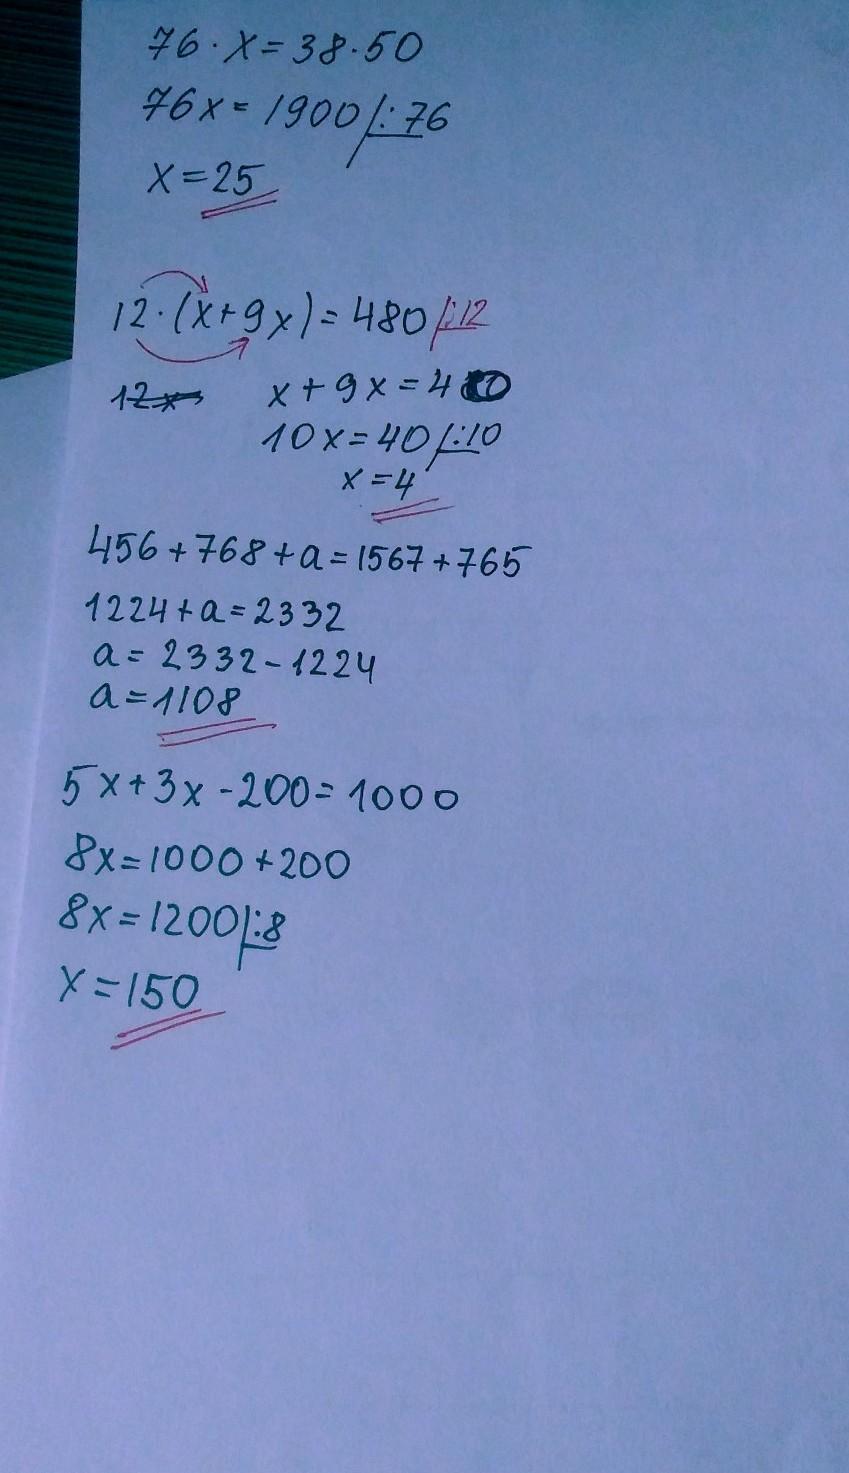 76·x=38·50
76x=1900/:76
x=25
12·(x+9x)=480/:12
12x x+9x=40
10x=40/:10
x=4
456+768+a=1567+765
1224+a=2332
a=2332-1224
a=1108
5x+3x-200=1000
8x=1000+200
8x=1200/:8
x=150